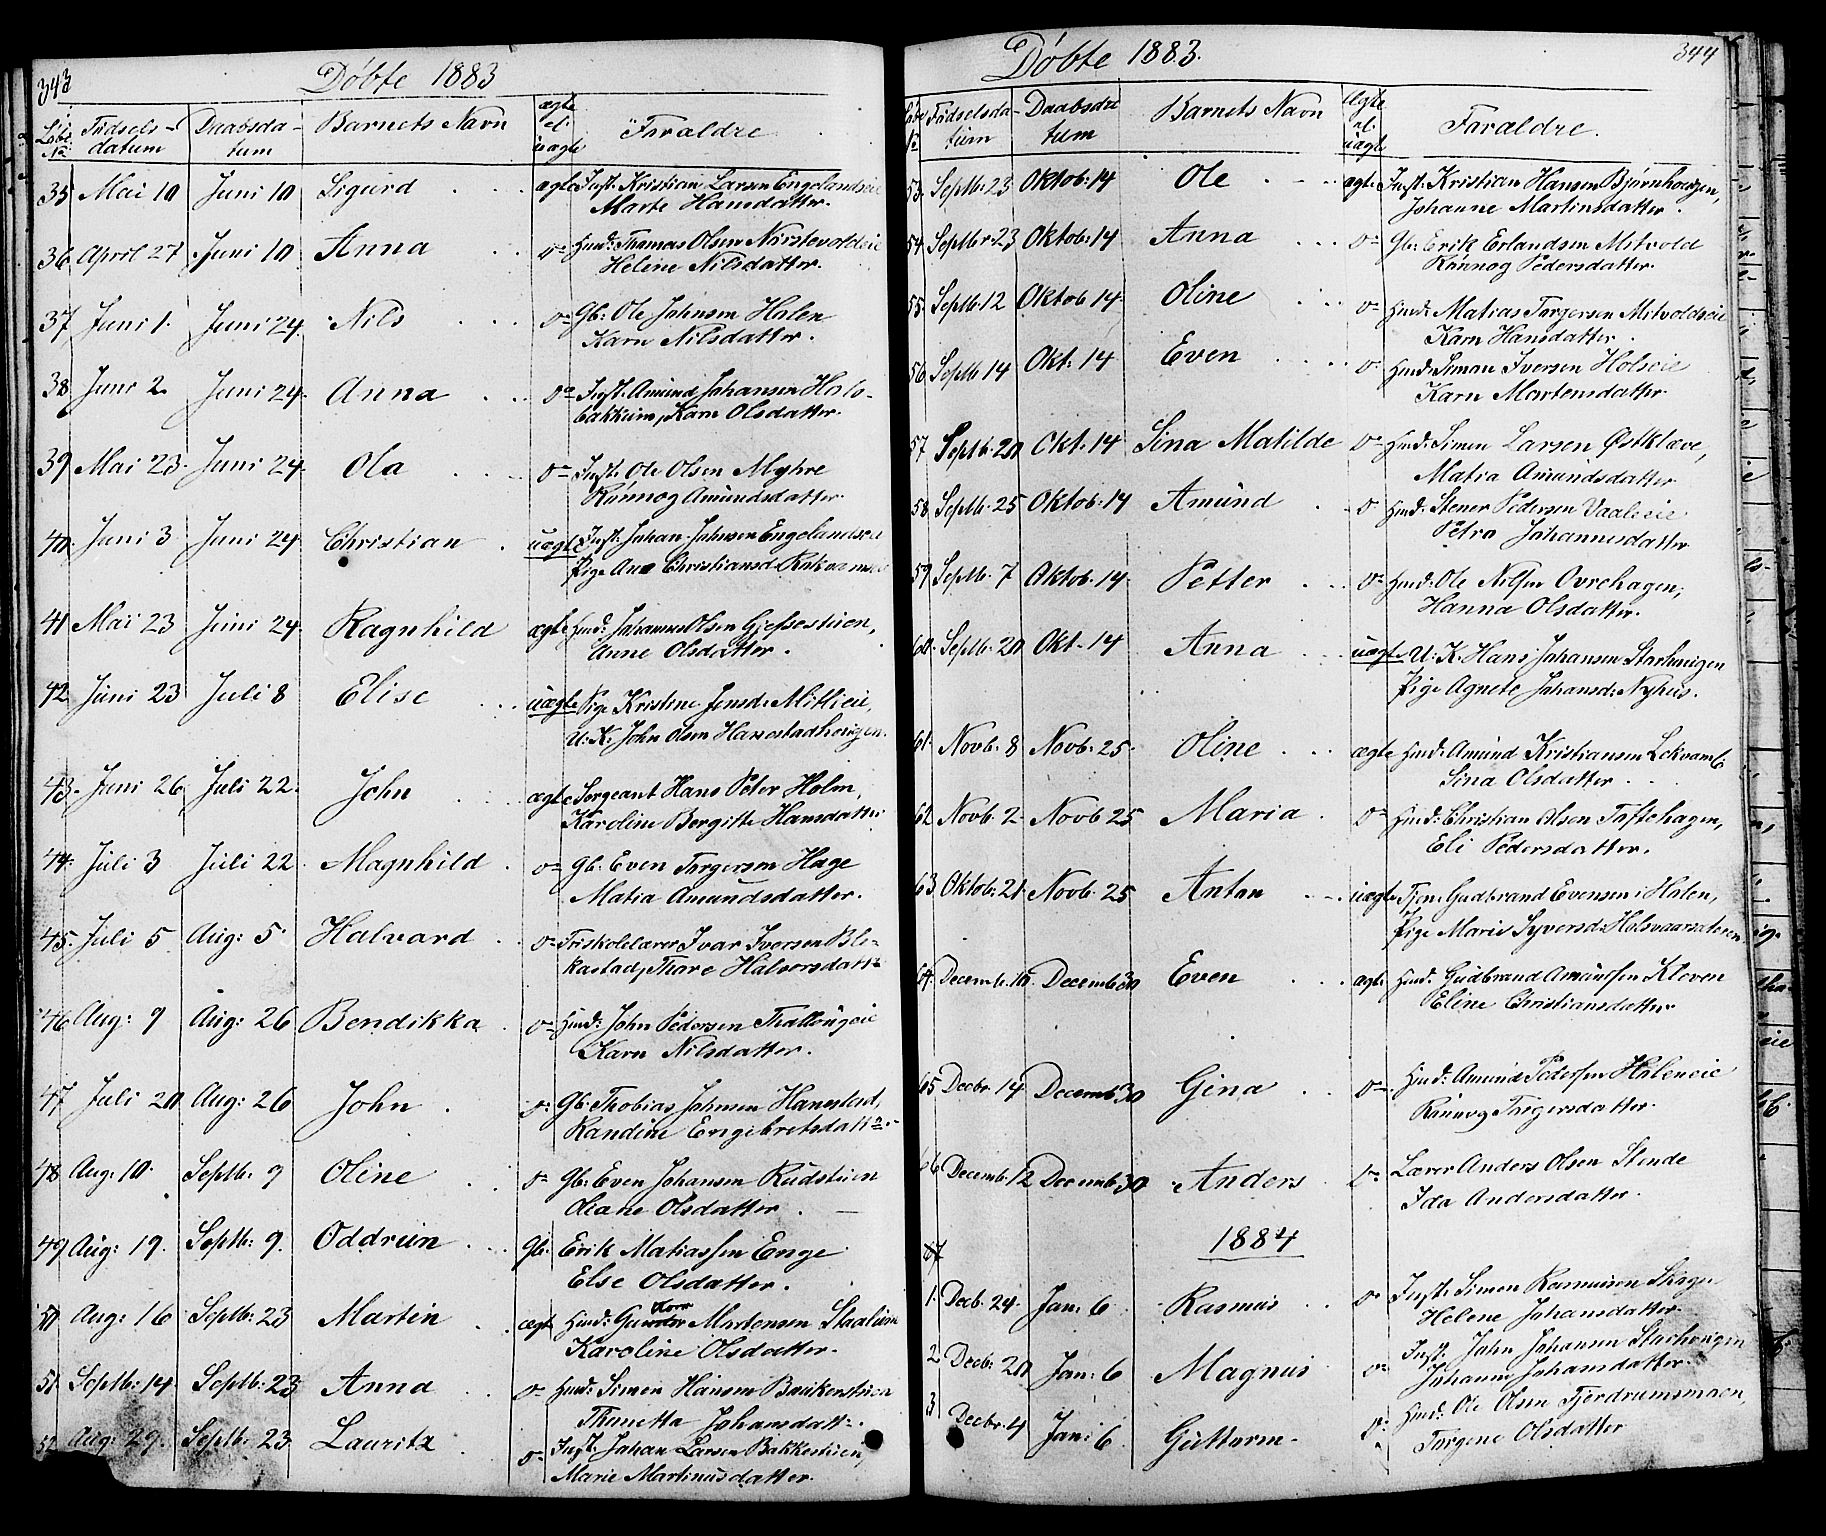 343
Döbte 1883
Löbe No
Födsels-datum
Daabsda-tum
Barnets Navn
ægte el. uægte
Foraldre
35 Mai 10 Juni 10 Sigurd ægte Inst. Kristian Larsen Engelandseie
Marte Hansdatter.
36 April 27 Juni 10 Anna do Husd: Thomas Olsen
Helene Nilsdatter.
37 Juni 1. Juni 24. Nils do Gb: Ole Johnsen Holen
Karn Nilsdatter.
38 Juni 2. Juni 24. Anna do Inst. Amund Johansen Hols-
bakkum, Karn Olsdatter.
39 Mai 23. Juni 24. Ola do Inst: Ole Olsen Myhre
Rönnog Amundsdatter
40. Juni 3 Juni 24 Christian uægte Inst. Johan Johnsen Engelandseie
Pige Ana Christiansd.
41 Mai 23 Juni 24. Ragnhild ægte Husd: Johannes Olsen Gjessestuen,
Anne Olsdatter.
42 Juni 23 Juli 8 Elise uægte Pige Kristine Jensd: Mitlieie,
U. K. John Olsen Hanestadhougen.
43. Juni 26 Juli 22. John ægte Sergeant Hans Peter Holm,
Karoline Bergitte Hansdatter
44. Juli 3 Juli 22. Magnhild do Gb: Even Torgersen Hage
Matia Amundsdatter.
45. Juli 5 Aug: 5. Halvard do Friskolelærer Ivar Iversen Ble-
kastad, Thare Halvorsdattr
46 Aug: 9 Aug: 26 Bendikka do Husd: John Pedersen Thallougeie
Karn Nilsdatter.
47 Juli 20 Aug: 26 John do Gb: Thobias Johnsen Hanestad,
Randine Engebretsdattr.
48 Aug: 10. Septb: 9 Oline do Gb: Even Johansen Rudstuen
Oliane Olsdatter.
49 Aug: 19. Septb: 9. Oddrun Gb: Erik Matiassen Enge
Else Olsdatter.
50 Aug: 16 Septb: 23 Martin ægte Husd: Mortensen
Karoline Olsdatter.
51. Septb: 14 Septb: 23 Anna do Husd: Simen Hansen
Thonetta Johansdatt:
52 Aug: 29. Septb: 23 Lauritz do Inst. Johan Larsen Bakkestuen,
Marie Martinusdatter.
344
Döbte 1883.
Löbe No
Födselsda-tum
Daabsda-tum
Barnets Navn
Ægte el. uægte
Foraldre.
53. Septb: 23 Oktob: 14 Ole ægte Inst: Kristian Hansen Bjørnhougen,
Johanne Martinsdatter.
54 Septbr 23 Oktob: 14 Anna do Gb: Erik Erlandsen Mitvold
Rönnog Pedersdatter.
55. Septb. 12 Oktob 14. Oline do Husd: Matias Torgersen Mitvoldseie
Karn Hansdatter.
56 Septb 14 Okt. 14 Even do Husd: Simon Iversen Holseie
Karn Mortensdatter
57 Septb. 20 Okt. 14 Sina Matilde do Husd: Simen Larsen Østklæve,
Matia Amundsdatter
58. Septb. 25 Oktob: 14 Amund do Husd: Stener Pedersen Vaalieie
Petra Johannesdatter
59. Septb. 7 Oktob. 14. Petter do Husd: Ole Nilsen Ovrehagen,
Hanna Olsdatter.
60. Septb. 20 Okt. 14 Anna uægte U. K. Hans Johansen
Pige Agnete Johansd: Nyhus.
61. Novb. 8 Novb. 25. Oline ægte Husd: Amund Kristiansen
Sina Olsdatter.
62. Novb. 2. Novb 25 Maria do Husd: Christian Olsen Toftehagen,
Eli Pedersdatter.
63. Oktob: 21. Novb. 25 Anton uægte Tjen: Gudbrand Evensen i Holen,
Pige Marie Syversd: Holsvaarsæteren
64. Decemb. 16. Decemb 30 Even ægte Husd: Gudbrand Amundsen Kloven
Eline Christiansdatter
65 Decbr. 14 Decemb 30 Gina do Husd: Amund Pedersen Holeneie
Rönnog Torgersdatter.
66 Decemb. 12 Decemb 30 Anders do Lærer Anders Olsen Stende
Ida Andersdatter.
67
1884
1. Decb. 24. Jan: 6 Rasmus do Inst: Simen Rasmusen
Helene Johansdatter.
2. Decb: 20 Jan: 6 Magnus do Inst. John Johansen
Johanne Johansdatter.
3 Decbr. 4 Jan: 6 Guttorm do Husd: Ole Olsen Fjerdrumsmoen,
Torgine Olsdatter